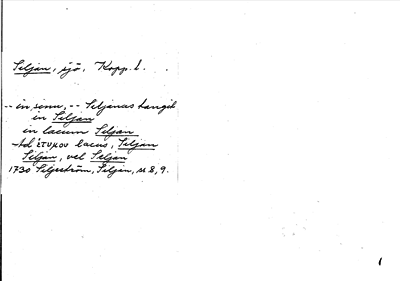 Siljan, sjö, Kopp. l.
-- in sinu, -- Siljanas
in Siljan
in lacum Siljan
Ad ἔτυμον lacus, Siljan
Siljan, vel Siljan
1730 Siljeström, Siljan, s. 8, 9.